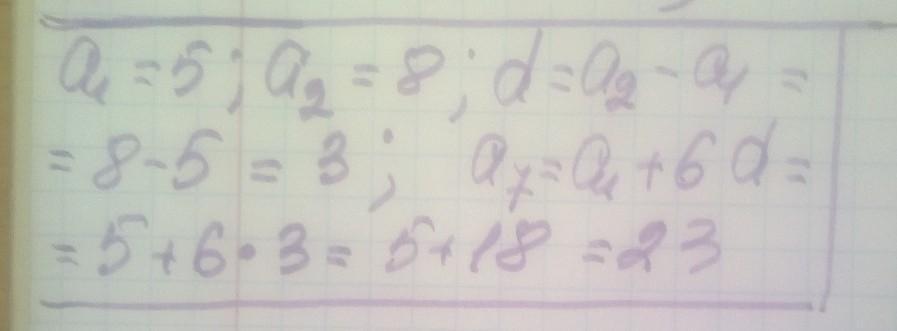 a₁ = 5; a₂ = 8; d = a₂ - a₁ =
= 8 - 5 = 3; a₇ = a₁ + 6d =
= 5 + 6 · 3 = 5 + 18 = 23